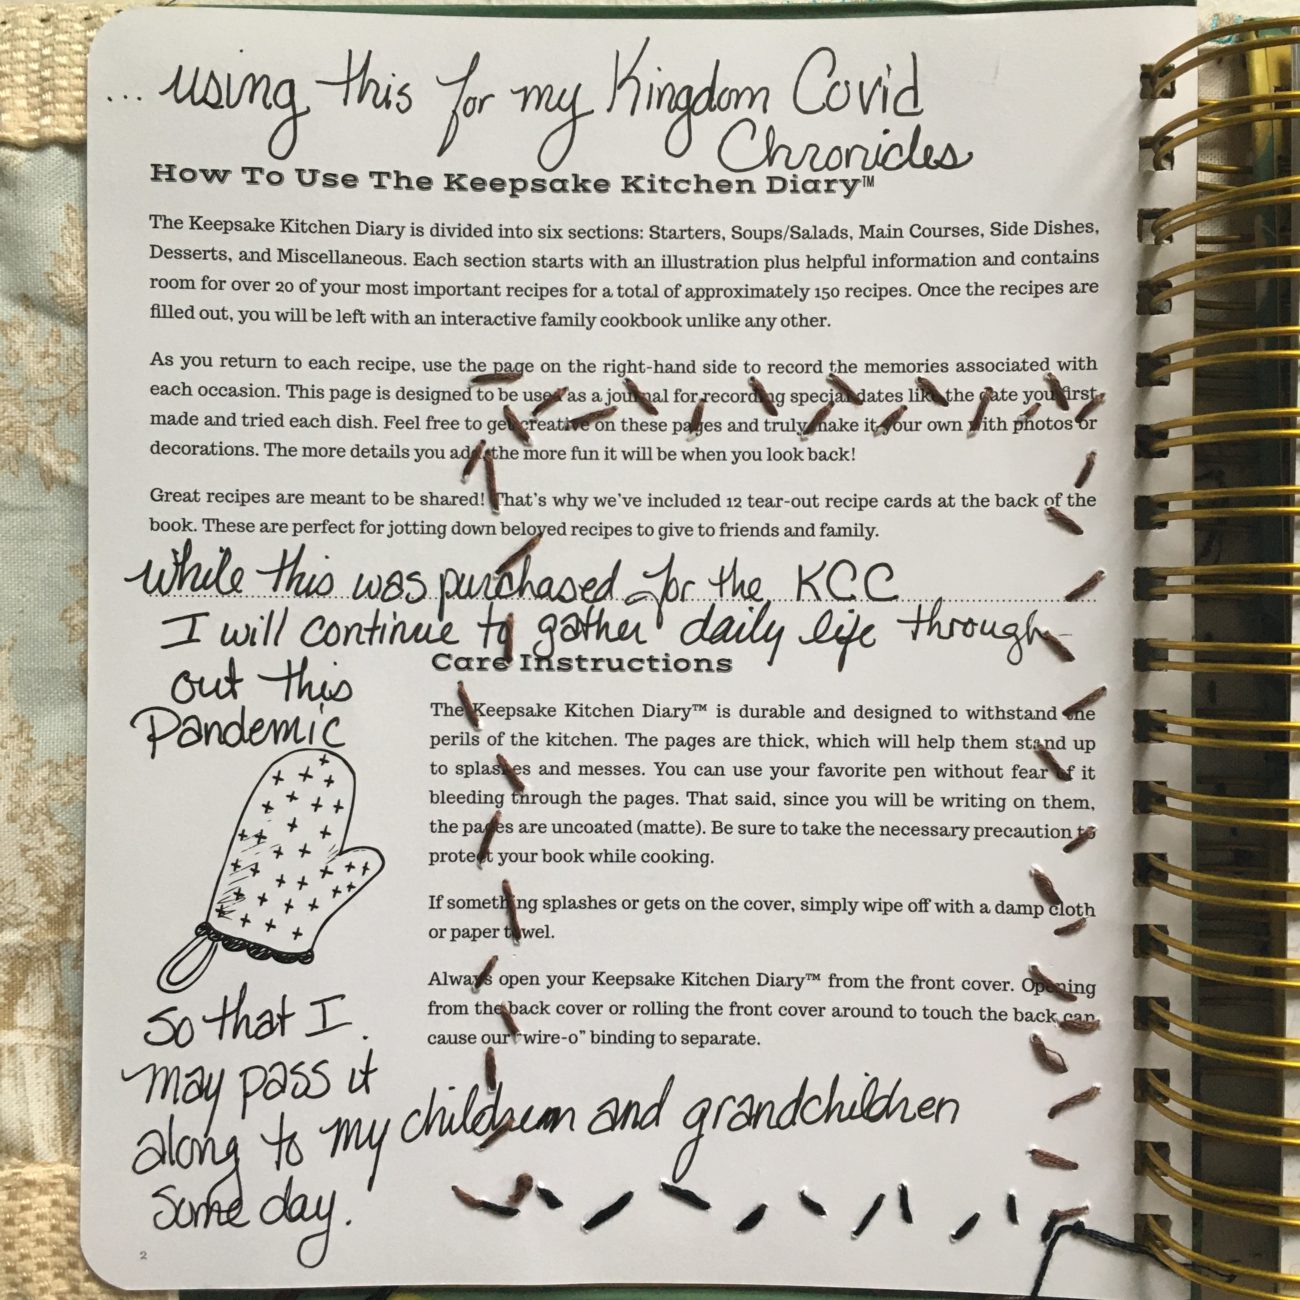 ... using this for my Kingdom Covid
Chronicles
How To Use The Keepsake Kitchen Diary™
The Keepsake Kitchen Diary is divided into six sections: Starters, Soups/Salads, Main Courses, Side Dishes,
Desserts, and Miscellaneous. Each section starts with an illustration plus helpful information and contains
room for over 20 of your most important recipes for a total of approximately 150 recipes. Once the recipes are
filled out, you will be left with an interactive family cookbook unlike any other.
As you return to each recipe, use the page on the right-hand side to record the memories associated with
each occasion. This page is designed to be used as a journal for recording special dates like the date you first
made and tried each dish. Feel free to get creative on these pages and truly make it your own with photos or
decorations. The more details you add, the more fun it will be when you look back!
Great recipes are meant to be shared! That's why we've included 12 tear-out recipe cards at the back of the
book. These are perfect for jotting down beloved recipes to give to friends and family.
while this was purchased for the KCC
I will continue to gather daily life through-
out this
Pandemic
Care Instructions
The Keepsake Kitchen Diary™ is durable and designed to withstand the
perils of the kitchen. The pages are thick, which will help them stand up
to splashes and messes. You can use your favorite pen without fear of it
bleeding through the pages. That said, since you will be writing on them,
the pages are uncoated (matte). Be sure to take the necessary precaution to
protect your book while cooking.
If something splashes or gets on the cover, simply wipe off with a damp cloth
or paper towel.
Always open your Keepsake Kitchen Diary™ from the front cover. Opening
from the back cover or rolling the front cover around to touch the back can
cause our "wire-o" binding to separate.
so that I
may pass it
along to my children and grandchildren
some day.
2